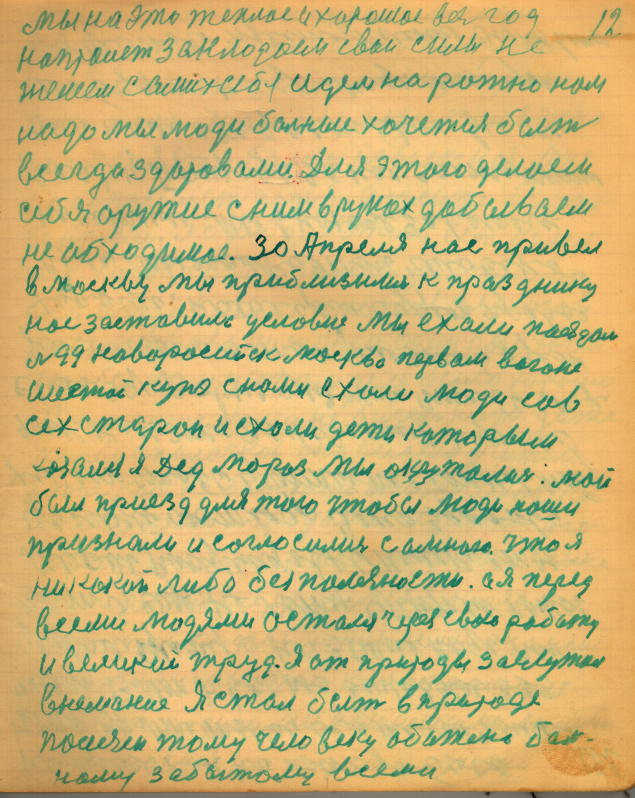 12
мы на это теплое и хорошое вес год
напролет закладоем свои силы не
жеем самих себя идем на рожно нам
надо мы люди больные хочется быт
всегда здоровами. Для этого делоем
себя оружие с ним в руках добываем
не обходимое. 30 Апреля нас привел
в москву мы приблизились к празднику
нас заставил условие мы ехали поездом
№ 99 новоросийск москва первом вагоне
шестой купэ с нами ехали люди сов
сех старон и ехали дети каторым
казался я Дед мороз мы мой
был приезд для того чтобы люди наши
признали и согласились самною. что я
ни какой либо безполезность. а я перед
всеми людями остался через свою работу
и великий труд. Я от природы заслужил
внемание Я стал быт в природе
полезен тому человеку обижено бол-
ному забытому всеми